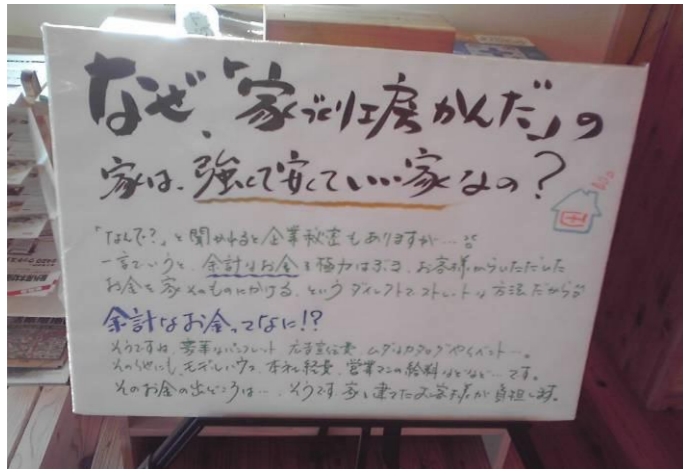 なぜ、「家づくり工房かんだ」の
家は、強くて安くていい家なの?
「なんで?」と聞かれると企業秘密もありますが…
一言でいうと、余計なお金を極力はぶき、お客様からいただいた
お金を家そのものにかける、というダイレクトでストレートな方法だからです
余計なお金ってなに!?
そうですね 豪華なパンフレット 広告宣伝費 ムダなカタログやイベント…。
その他にも、モデルハウス、本社経費、営業マンの給料などなど…です。
そのお金の出どころは…、そうです 家を建てたお客様が負担します。